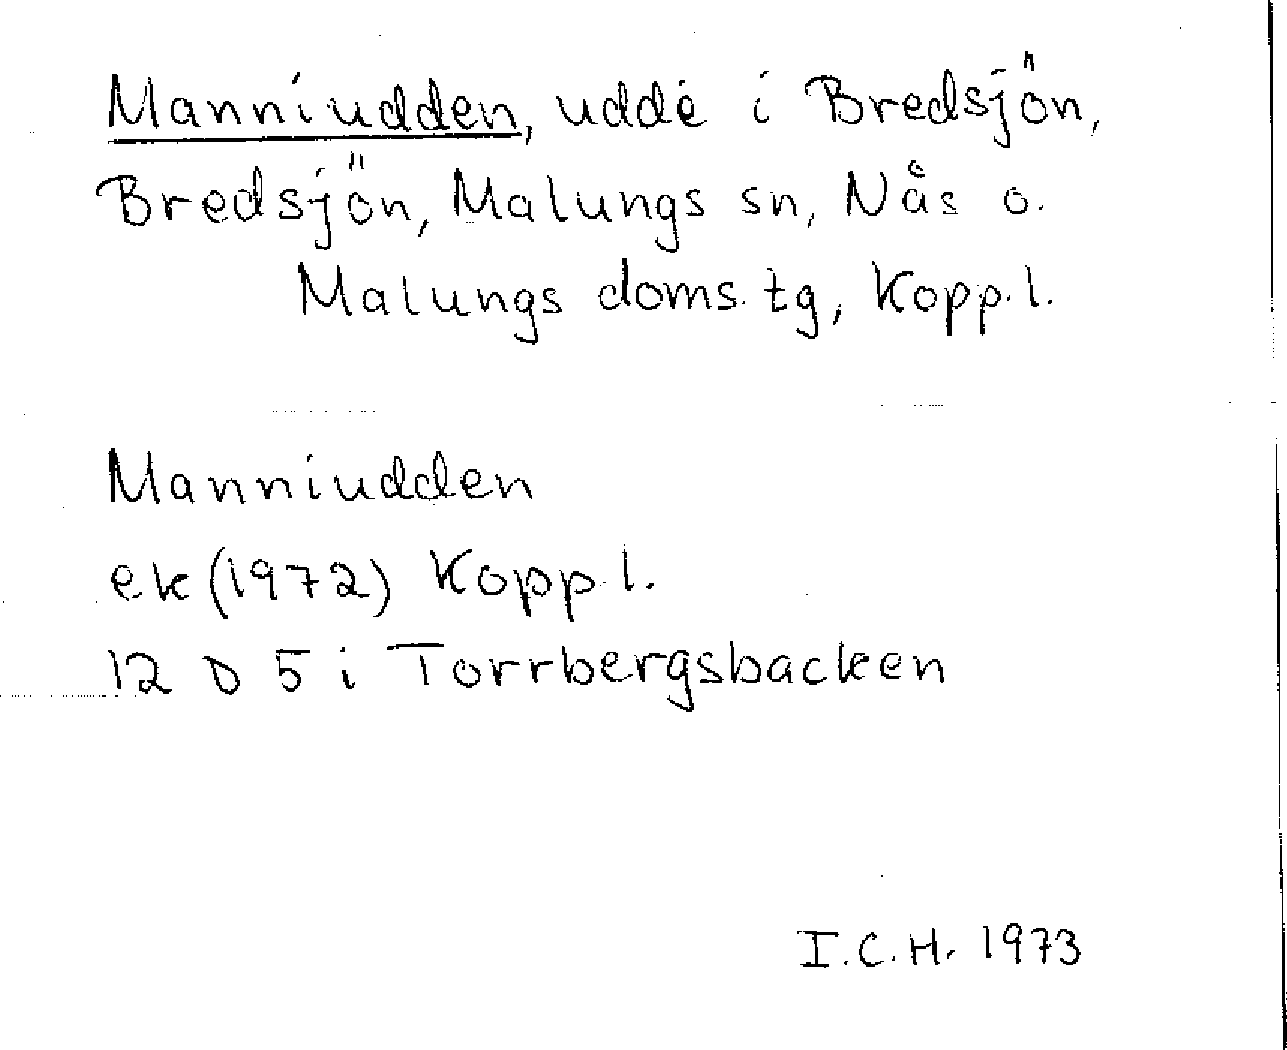 Manniudden, udde i Bredsjön,
Bredsjön, Malungs sn, Nås o.
Malungs doms.tg, Kopp.l.
Manniudden
ek (1972) Kopp.l.
12 D 5 i Torrbergsbacken
I.C.H. 1973